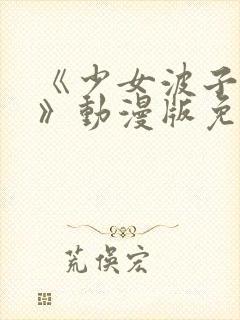 《少女波子
》動漫版免
荒俁宏